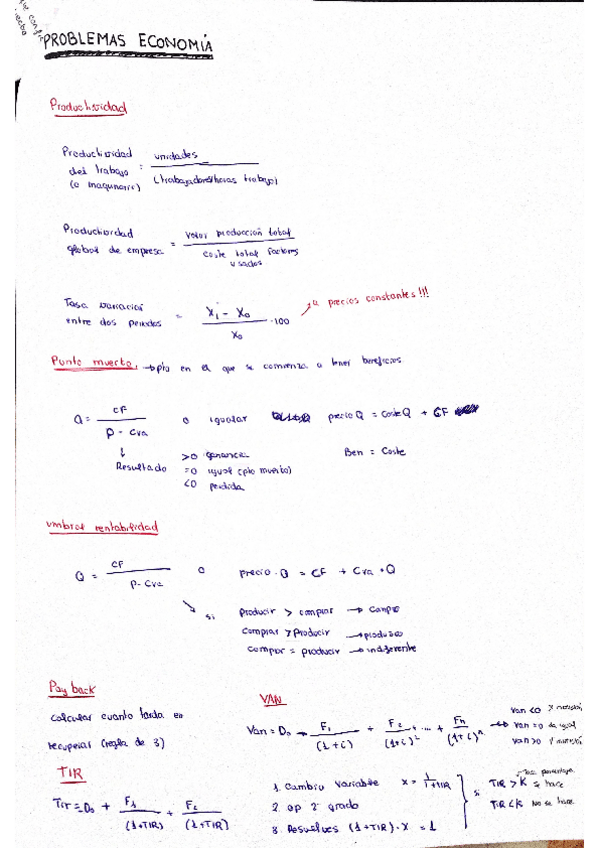 PROBLEMAS ECONOMÍA
Productividad
Productividad del trabajo (o maquinaria) = unidades / (trabajadores/horas trabajo)
Productividad global de empresa = valor producción total / coste total factores usados
Tasa variación entre dos periodos = X₁ - X₀ / X₀ · 100 → a precios constantes!!!
Punto muerto. → pto en el que se comienza a tener beneficios
Q = CF / P - Cva o igualar precio Q = Coste Q + CF
↓
Resultado >0 ganancia Ben = Coste
=0 igual (pto muerto)
<0 perdida
umbral rentabilidad
Q = CF / P - Cva o precio · Q = CF + Cva · Q
si producir > comprar → compro
comprar > Producir → produzco
comprar = producir → indiferente
Pay back
calcular cuanto tarda en
recuperar (regla de 3)
VAN
Van = D₀ - F₁ / (1+i) + F₂ / (1+i)² + ... + Fn / (1+i)ⁿ
Van <0 X
Van =0 da igual
Van >0
TIR
TIR = D₀ + F₁ / (1+TIR) + F₂ / (1+TIR)
1. Cambio Variable X = 1 / 1+TIR
2. ap 2º grado
3. Resuelves (1+TIR) · X = 1
si TIR > K se hace
TIR < K No se hace